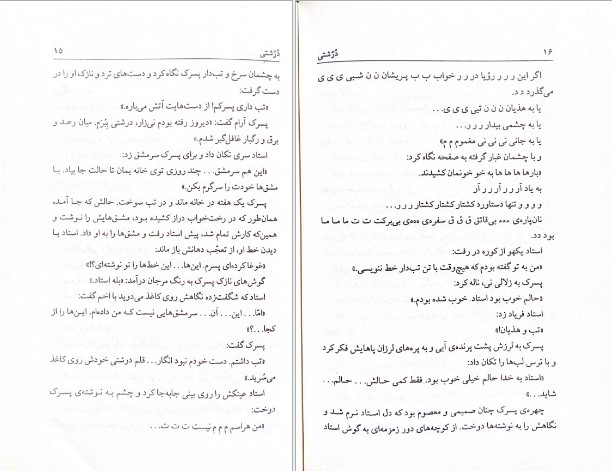 ۱۵
دُرُشتی
به چشمان سرخ و تب‌دار پسرک نگاه کرد و دست‌های ترد و نازک او را در
دست گرفت:
«تب داری پسرکم! از دست‌هایت آتش می‌باره.»
پسرک آرام گفت: «دیروز رفته بودم نی‌زار، درشتی بِبُرَم. میان رعد و
برق و رگبار غافل‌گیر شدم.»
استاد سری تکان داد و برای پسرک سرمشق زد:
«این هم سرمشق... چند روزی توی خانه بمان تا حالت جا بیاد. با
مشق‌ها خودت را سرگرم بکن.»
پسرک یک هفته در خانه ماند و در تب سوخت. حالش که جا آمد،
همان‌طور که در رخت‌خواب دراز کشیده بود، مشق‌هایش را نوشت و
همین‌که کارش تمام شد، پیش استاد رفت و مشق‌ها را به او داد. استاد با
دیدن خط او، از تعجّب دهانش باز ماند:
«غوغا کرده‌ای پسرم. این‌ها... این خط‌ها را تو نوشته‌ای؟!»
گوش‌های نازک پسرک به رنگ مرجان درآمد: «بله استاد.»
استاد که شگفت‌زده نگاهش روی کاغذ می‌دوید با اخم گفت:
«امّا... این... آن... سرمشق‌هایی نیست که من داده‌ام. این‌ها را از
کجا...؟»
پسرک گفت:
«تب داشتم. دست خودم نبود انگار... قلم درشتی خودش روی کاغذ
می‌سُرید.»
استاد عینکش را روی بینی جابه‌جا کرد و چشم به نوشته‌ی پسرک
دوخت:
«من هراسم م م م نیست ت ت ت...
۱۶
دُرُشتی
اگر این ر ر ر رؤیا در ر ر خواب ب ب پریشان ن ن شبی ی ی ی
می‌گذرد د د.
یا به هذیان ن ن ن تبی ی ی ی...
یا به چشمی بیدار ر ر ر...
یا به جانی نی نی نی مغموم م م»
و با چشمان غبار گرفته به صفحه نگاه کرد:
«بارها ها ها ها به خو خونمان کشیدند.
به یاد آر ر آر ر آر ر آر
و و و و تنها دستاورد کشتار کشتار کشتار ر ر ر...
نان‌پاره‌ی ه‌ه‌ه بی‌قاتق ق ق ق سفره‌ی ه‌ه‌ه‌ی بی‌برکت ت ت ما ما ما ما
بود دد.
استاد یکهو از کوره در رفت:
«من به تو گفته بودم که هیچ‌وقت با تن تب‌دار خط ننویسی.»
پسرک به زلالی نی، ناله کرد:
«حالم خوب بود استاد خوب شده بودم.»
استاد فریاد زد:
«تب و هذیان!»
پسرک به لرزش پشت پرنده‌ی آبی و به پره‌های لرزان پاهایش فکر کرد
و با ترس لب‌ها را تکان داد:
«استاد به خدا حالم خیلی خوب بود. فقط کمی حالش... حالم...
شاید...»
چهره‌ی پسرک چنان صمیمی و معصوم بود که دل استاد نرم شد و
نگاهش را به نوشته‌ها دوخت. از کوچه‌های دور زمزمه‌ای به گوش استاد